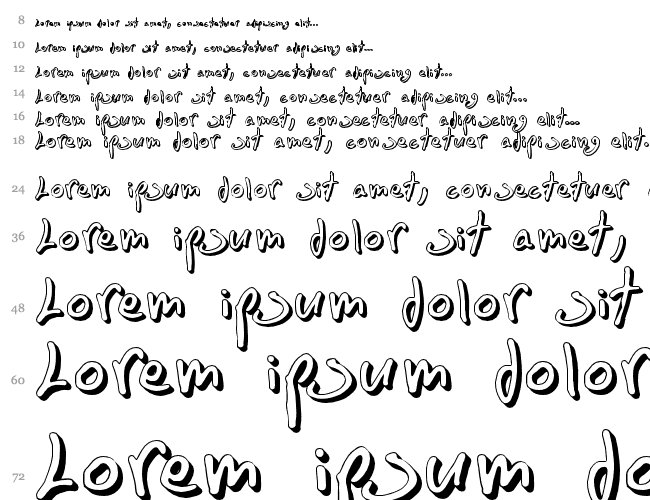 8 Lorem ipsum dolor sit amet, consectetuer adipiscing elit...
10 Lorem ipsum dolor sit amet, consectetuer adipiscing elit...
12 Lorem ipsum dolor sit amet, consectetuer adipiscing elit...
14 Lorem ipsum dolor sit amet, consectetuer adipiscing elit...
16 Lorem ipsum dolor sit amet, consectetuer adipiscing elit...
18 Lorem ipsum dolor sit amet, consectetuer adipiscing elit.
24 Lorem ipsum dolor sit amet, consectetuer
36 Lorem ipsum dolor sit amet,
48 Lorem ipsum dolor sit
60 Lorem ipsum dolor
72 Lorem ipsum do